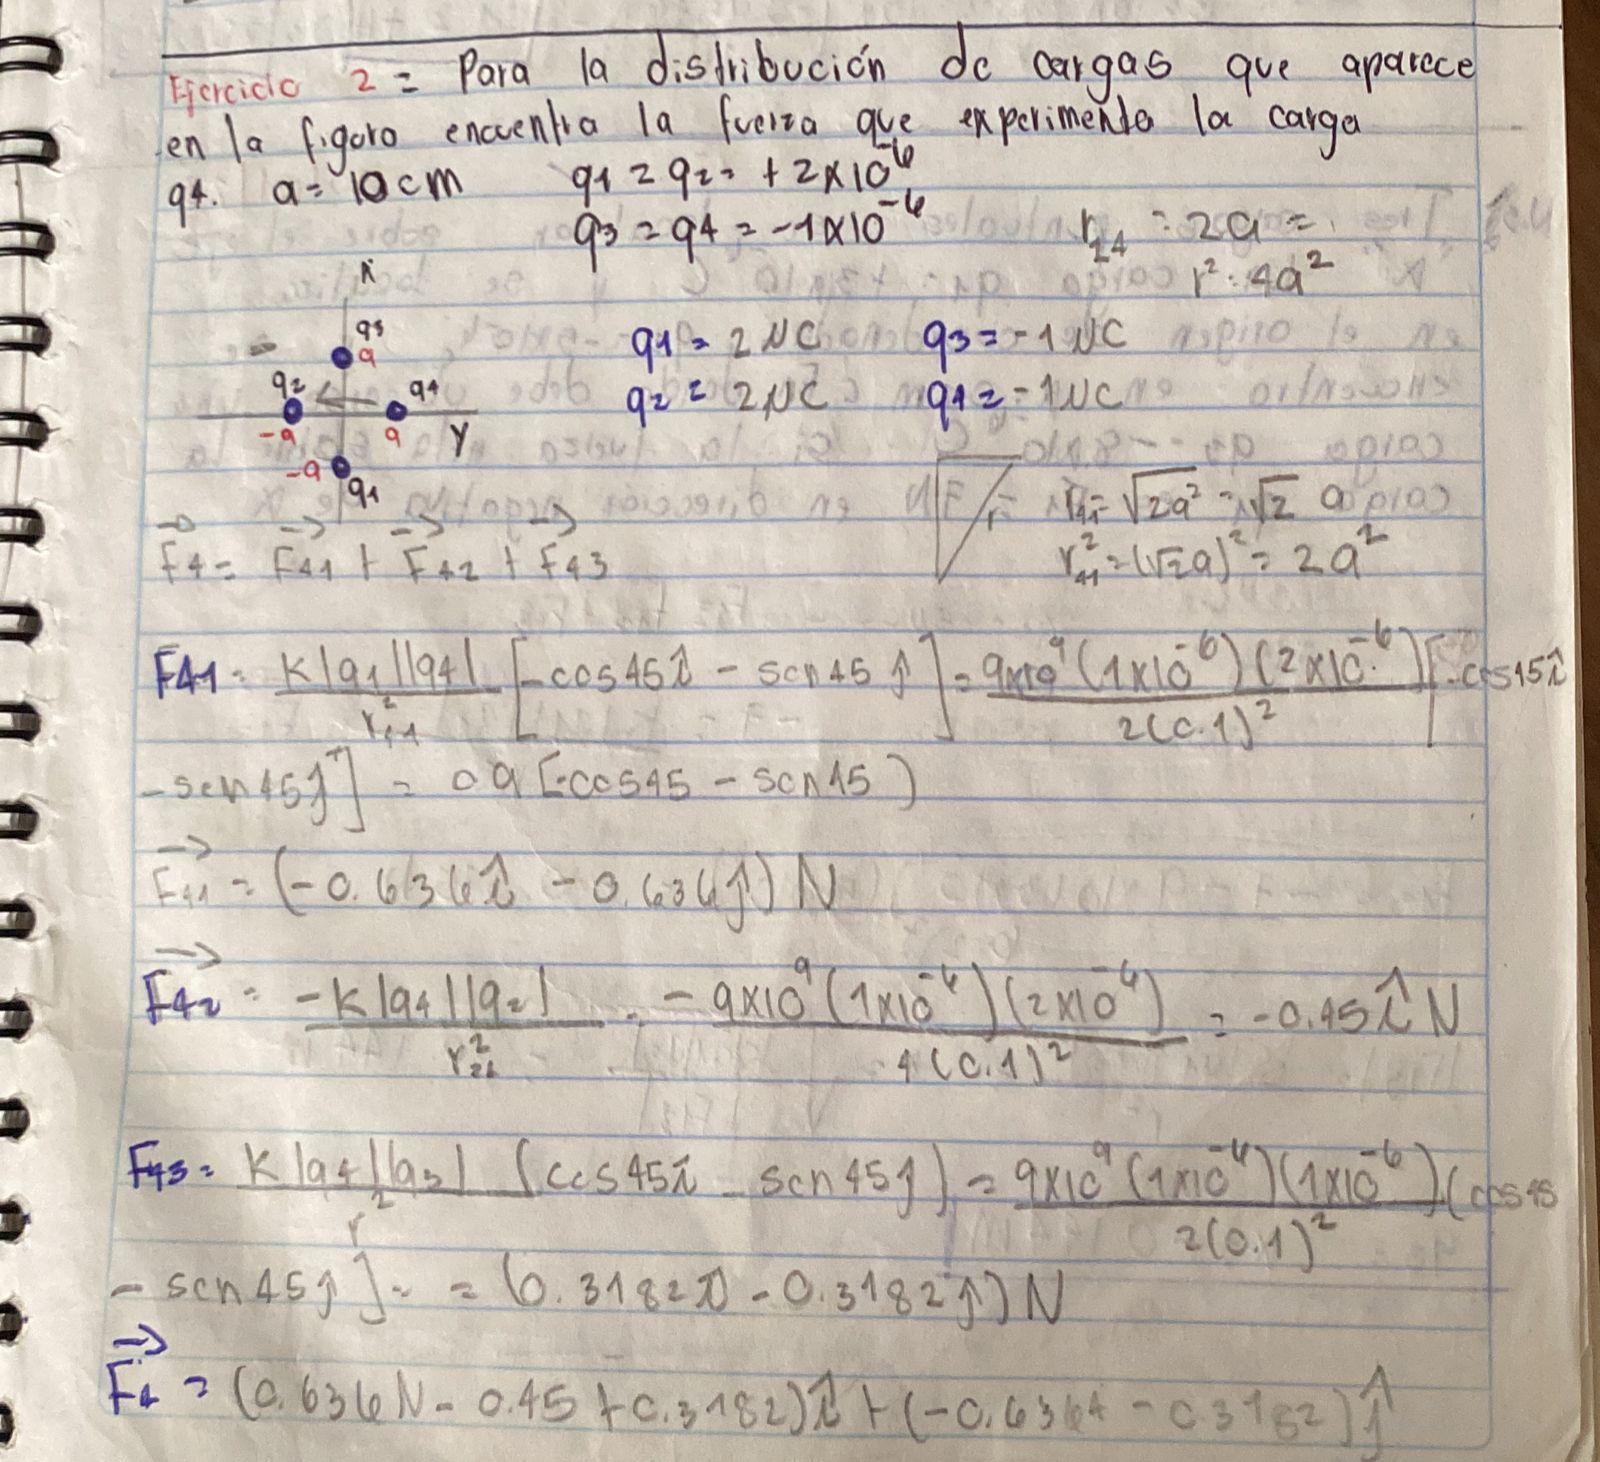 Ejercicio 2 = Para la distribución de cargas que aparece
en la figura encuentra la fuerza que experimenta la carga
q4. a= 10cm q1 = q2 = +2x10^-6
q3 = q4 = -1x10^-6
r24 = 2a =
r² = 4a²
x
q3
a
q2 q4
-a a y
-a
q1
q1 = 2 μC q3 = -1 μC
q2 = 2 μC q4 = -1 μC
r r41 = √2a² = √2 a
r41² = (√2a)² = 2a²
F4 = F41 + F42 + F43
F41 = K|q1||q4| / r41² [-cos45î - sen45 ĵ] = 9x10^9 (1x10^-6)(2x10^-6) / 2(0.1)² [-cos45î
- sen45ĵ] = 0.9 [-cos45 - sen45)
F41 = (-0.636î - 0.636ĵ) N
F42 = -K|q4||q2| / r24² = -9x10^9 (1x10^-6)(2x10^-6) / 4(0.1)² = -0.45 î N
F43 = K|q4||q3| / r² (cos45î - sen45ĵ) = 9x10^9 (1x10^-6)(1x10^-6) / 2(0.1)² (cos45
- sen45ĵ] = (0.3182î - 0.3182ĵ) N
F4 = (0.636N - 0.45 + 0.3182)î + (-0.6364 - 0.3182)ĵ